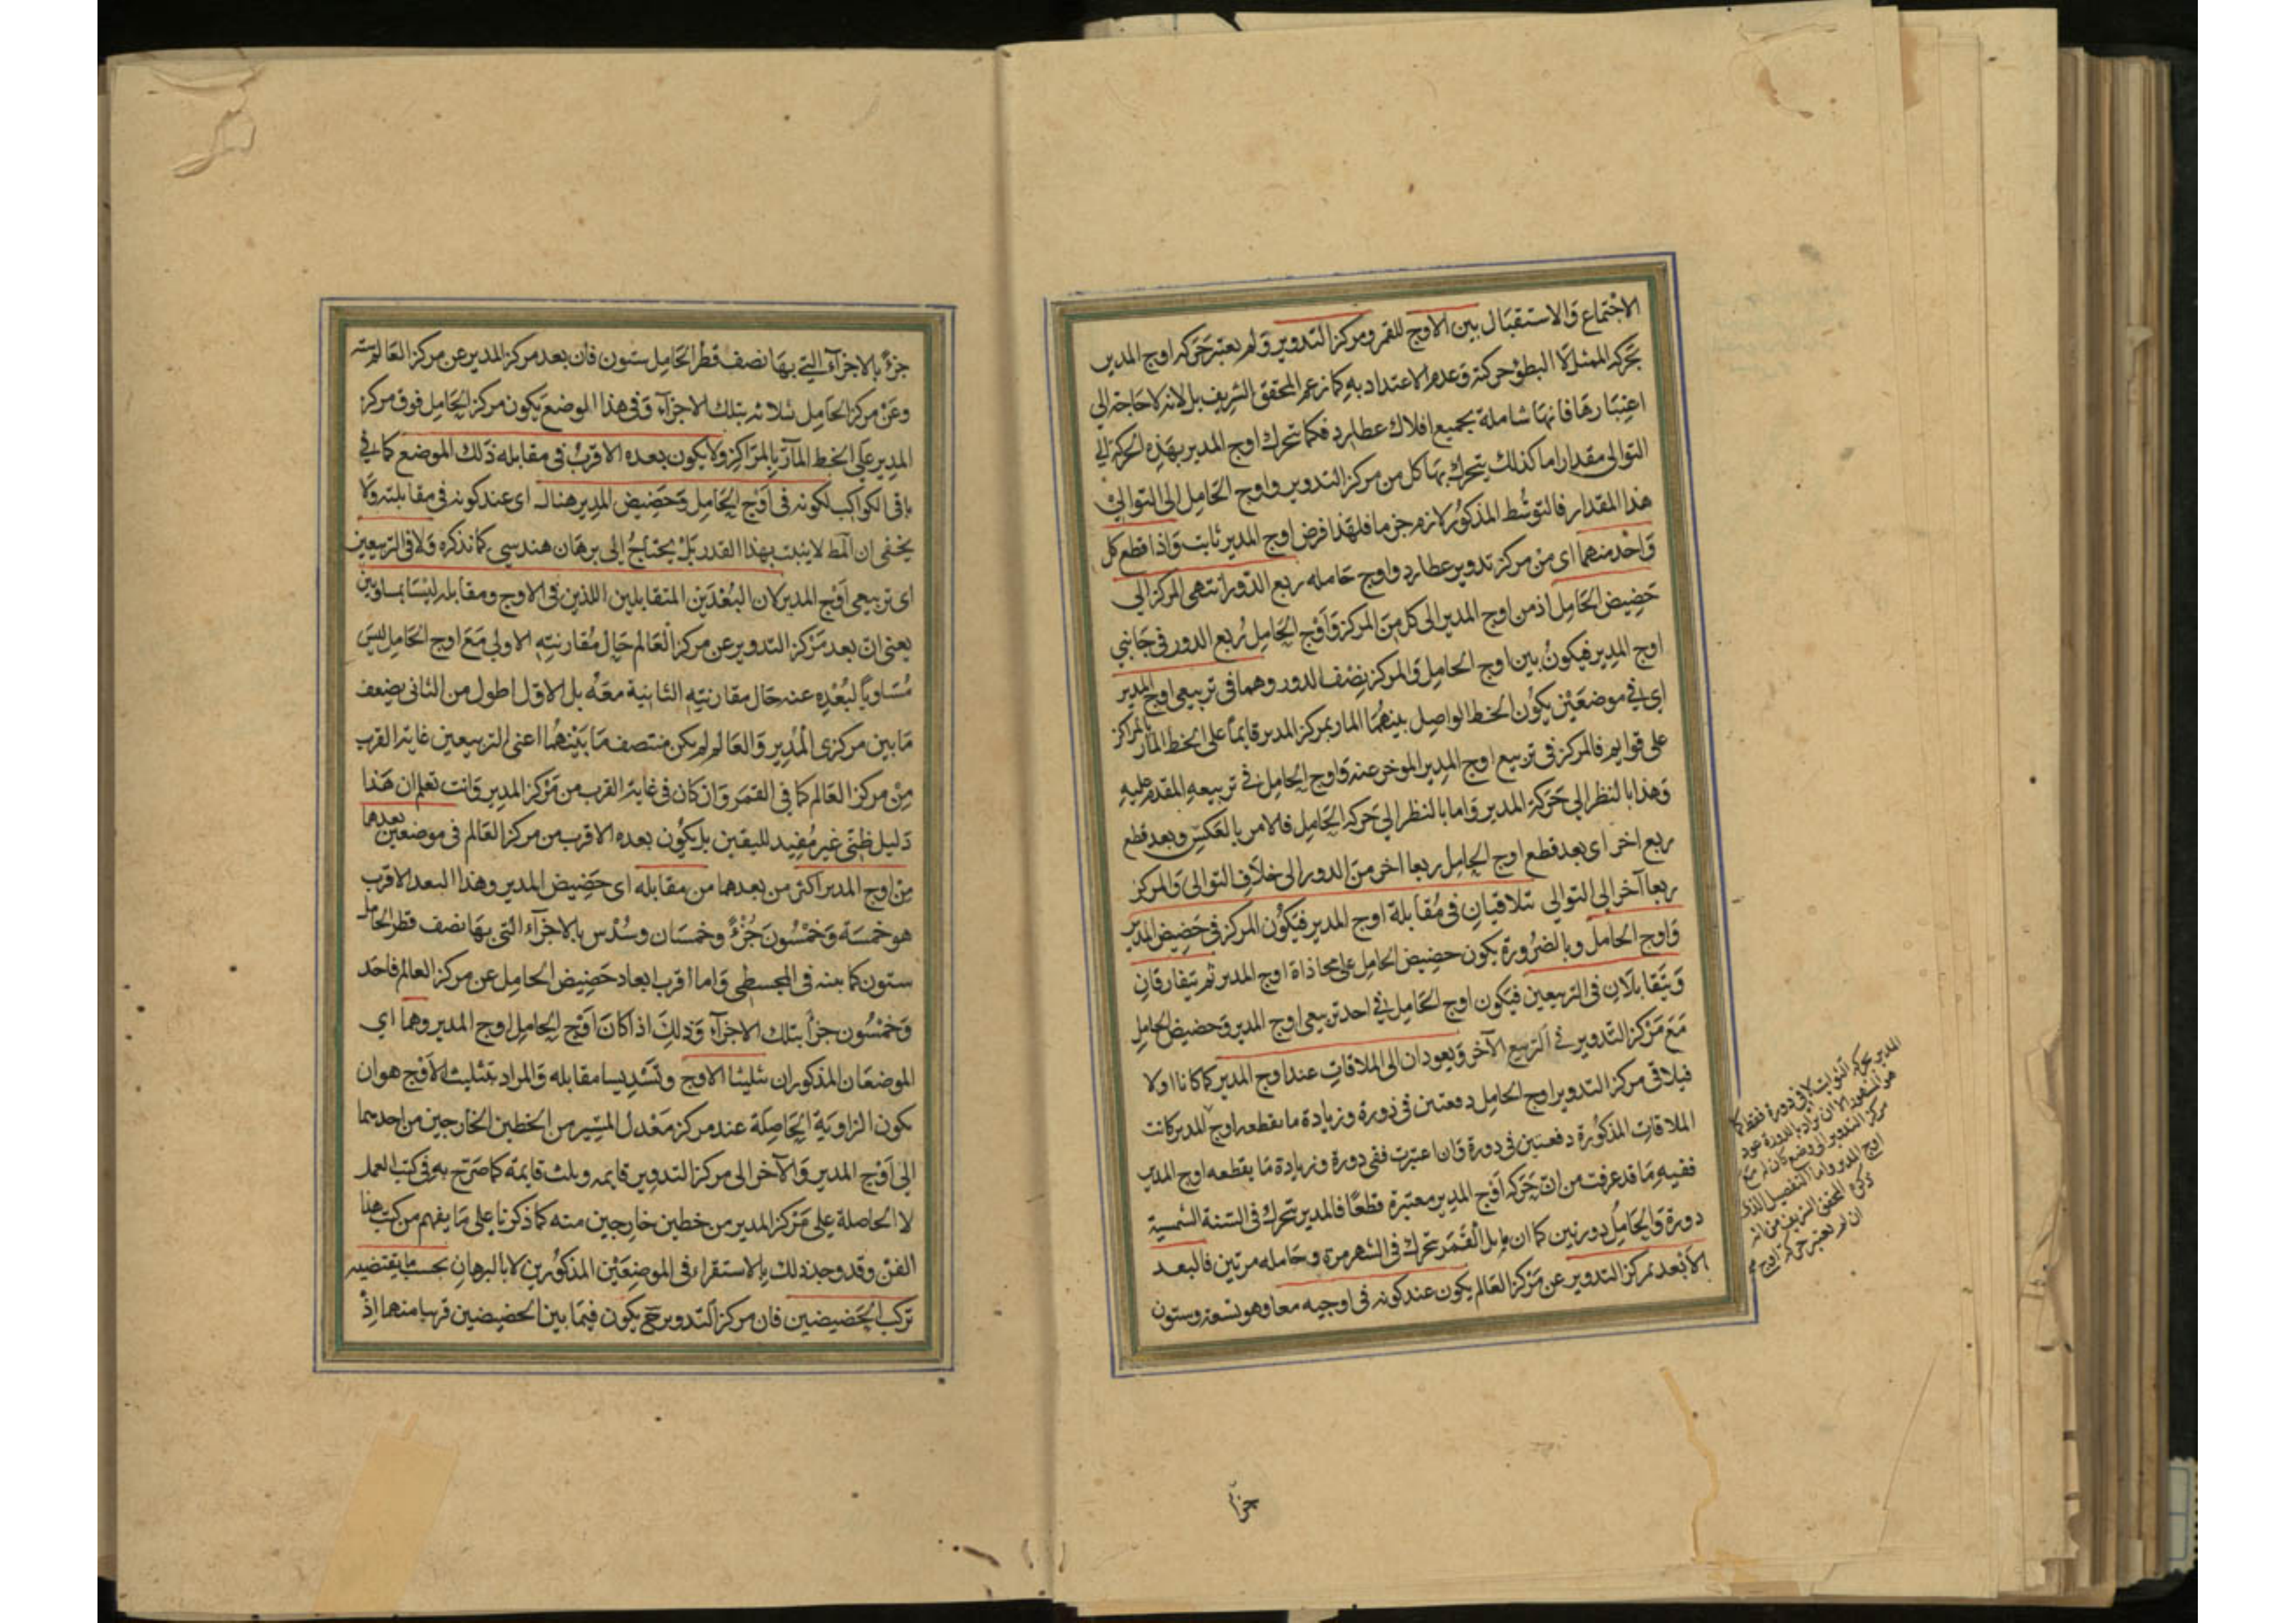 الاجتماع والاستقبال بين الاوج للقمر ومركز التدوير ولم يعتبر حركة اوج المدير
بحركة الممثل لا لبطؤ حركته وعدم الاعتداد به كما زعم المحقق الشريف بل لانه لا حاجة الى
اعتبارها فانها شاملة بجميع افلاك عطارد فكما تتحرك اوج المدير بهذه الحركة الى
التوالى مقدارا ما كذلك يتحرك بها كل من مركز التدوير واوج الحامل الى التوالى
هذا المقدار فالتوسط المذكور لازم جزما فلهذا فرض اوج المدير ثابت واذا قطع كل
واحد منهما اى من مركز تدوير عطارد واوج حامله ربع الدور انتهى المركز الى
حضيض الحامل اذ من اوج المدير الى كل من المركز واوج الحامل ربع الدور فى جانبى
اوج المدير فيكون بين اوج الحامل والمركز نصف الدور وهما فى تربيعى اوج المدير
اى فى موضعين يكون الخط الواصل بينهما المار بمركز المدير قايما على الخط المار بالمراكز
على قوايم فالمركز فى تربيع اوج المدير الموخر عنه واوج الحامل فى تربيعه المقدم عليه
وهذا بالنظر الى حركة المدير واما بالنظر الى حركة الحامل فالامر بالعكس وبعد قطع
ربع اخر اى بعد قطع اوج الحامل ربعا اخر من الدور الى خلاف التوالى والمركز
ربعا آخر الى التوالى تتلاقيان فى مقابلة اوج المدير فيكون المركز فى حضيض المدير
واوج الحامل وبالضرورة يكون حضيض الحامل على محاذاة اوج المدير ثم يتفارقان
ويتقابلان فى التربيعين فيكون اوج الحامل فى احد تربيعى اوج المدير وحضيض الحامل
مع مركز التدوير فى التربيع الآخر ويعودان الى الملاقات عند اوج المدير كما كانا اولا
فيلاقى مركز التدوير اوج الحامل دفعتين فى دورة وزيادة ما يقطعه اوج المدير كانت
الملاقات المذكورة دفعتين فى دورة وان اعتبرت ففى دورة وزيادة ما يقطعه اوج المدير
ففيه ما قد عرفت من ان حركة اوج المدير معتبرة قطعا فالمدير يتحرك فى السنة الشمسية
دورة والحامل دورتين كما ان مايل القمر يتحرك فى الشهر مرة وحامله مرتين فالبعد
الابعد لمركز التدوير عن مركز العالم يكون عند كونه فى اوجيه معا وهو تسعة وستون
المدير بحركة الثوابت لا فى دورة فقط كما
هو المشهور الا ان يراد بالدورة عود
مركز التدوير الى وضع كان له مع
اوج المدير واما التفصيل الذى
ذكره المحقق الشريف من انه
ان لم يعتبر حركة اوج
جزأ
جزءً بالاجزآء التى بها نصف قطر الحامل ستون فان بعد مركز المدير عن مركز العالم ستة
وعن مركز الحامل ثلاثة بتلك الاجزآء وفى هذا الموضع يكون مركز الحامل فوق مركز
المدير على الخط المآر بالمراكز ولا يكون بعده الاقرب فى مقابله ذلك الموضع كما فى
باقى الكواكب لكونه فى اوج الحامل وحضيض المدير هناك اى عند كونه فى مقابلته ولا
يخفى ان المط لا يثبت بهذا القدر بل يحتاج الى برهان هندسى كما نذكره ولا فى التربيعين
اى تربيعى اوج المدير لان البعدين المتقابلين اللذين فى الاوج ومقابله ليسا بمتساويين
يعنى ان بعد مركز التدوير عن مركز العالم حال مقارنته الاولى مع اوج الحامل ليس
مساويا لبعده عنه حال مقارنته الثانية معه بل الاول اطول من الثانى بضعف
ما بين مركزى المدير والعالم لم يكن منتصف ما بينهما اعنى التربيعين غاية القرب
من مركز العالم كما فى القمر وان كان فى غاية القرب من مركز المدير وانت تعلم ان هذا
دليل ظنى غير مفيد لليقين بل يكون بعده الاقرب من مركز العالم فى موضعين بعدهما
من اوج المدير اكثر من بعدهما من مقابله اى حضيض المدير وهذا البعد الاقرب
هو خمسة وخمسون جزءً وخمسان وسدس بالاجزآء التى بها نصف قطر الحامل
ستون كما بينه فى المجسطى واما اقرب ابعاد حضيض الحامل عن مركز العالم فاحد
وخمسون جزأ بتلك الاجزآء وذلك اذا كان اوج الحامل اوج المدير وهما اى
الموضعان المذكوران تثليثا الاوج وتسديسا مقابله والمراد بتثليث الاوج هو ان
يكون الزاوية الحاصلة عند مركز معدل المسير من الخطين الخارجين من احدهما
الى اوج المدير والآخر الى مركز التدوير قايمه وثلث قايمة كما صرح به فى كتب العمل
لا الحاصلة على مركز المدير من خطين خارجين منه كما ذكرنا على ما يفهم من كتب هذا
الفن وقد وجد ذلك بالاستقراء فى الموضعين المذكورين لا بالبرهان بحسب ما يقتضيه
تركب الحضيضين فان مركز التدوير ح يكون فيما بين الحضيضين قريبا منهما اذ